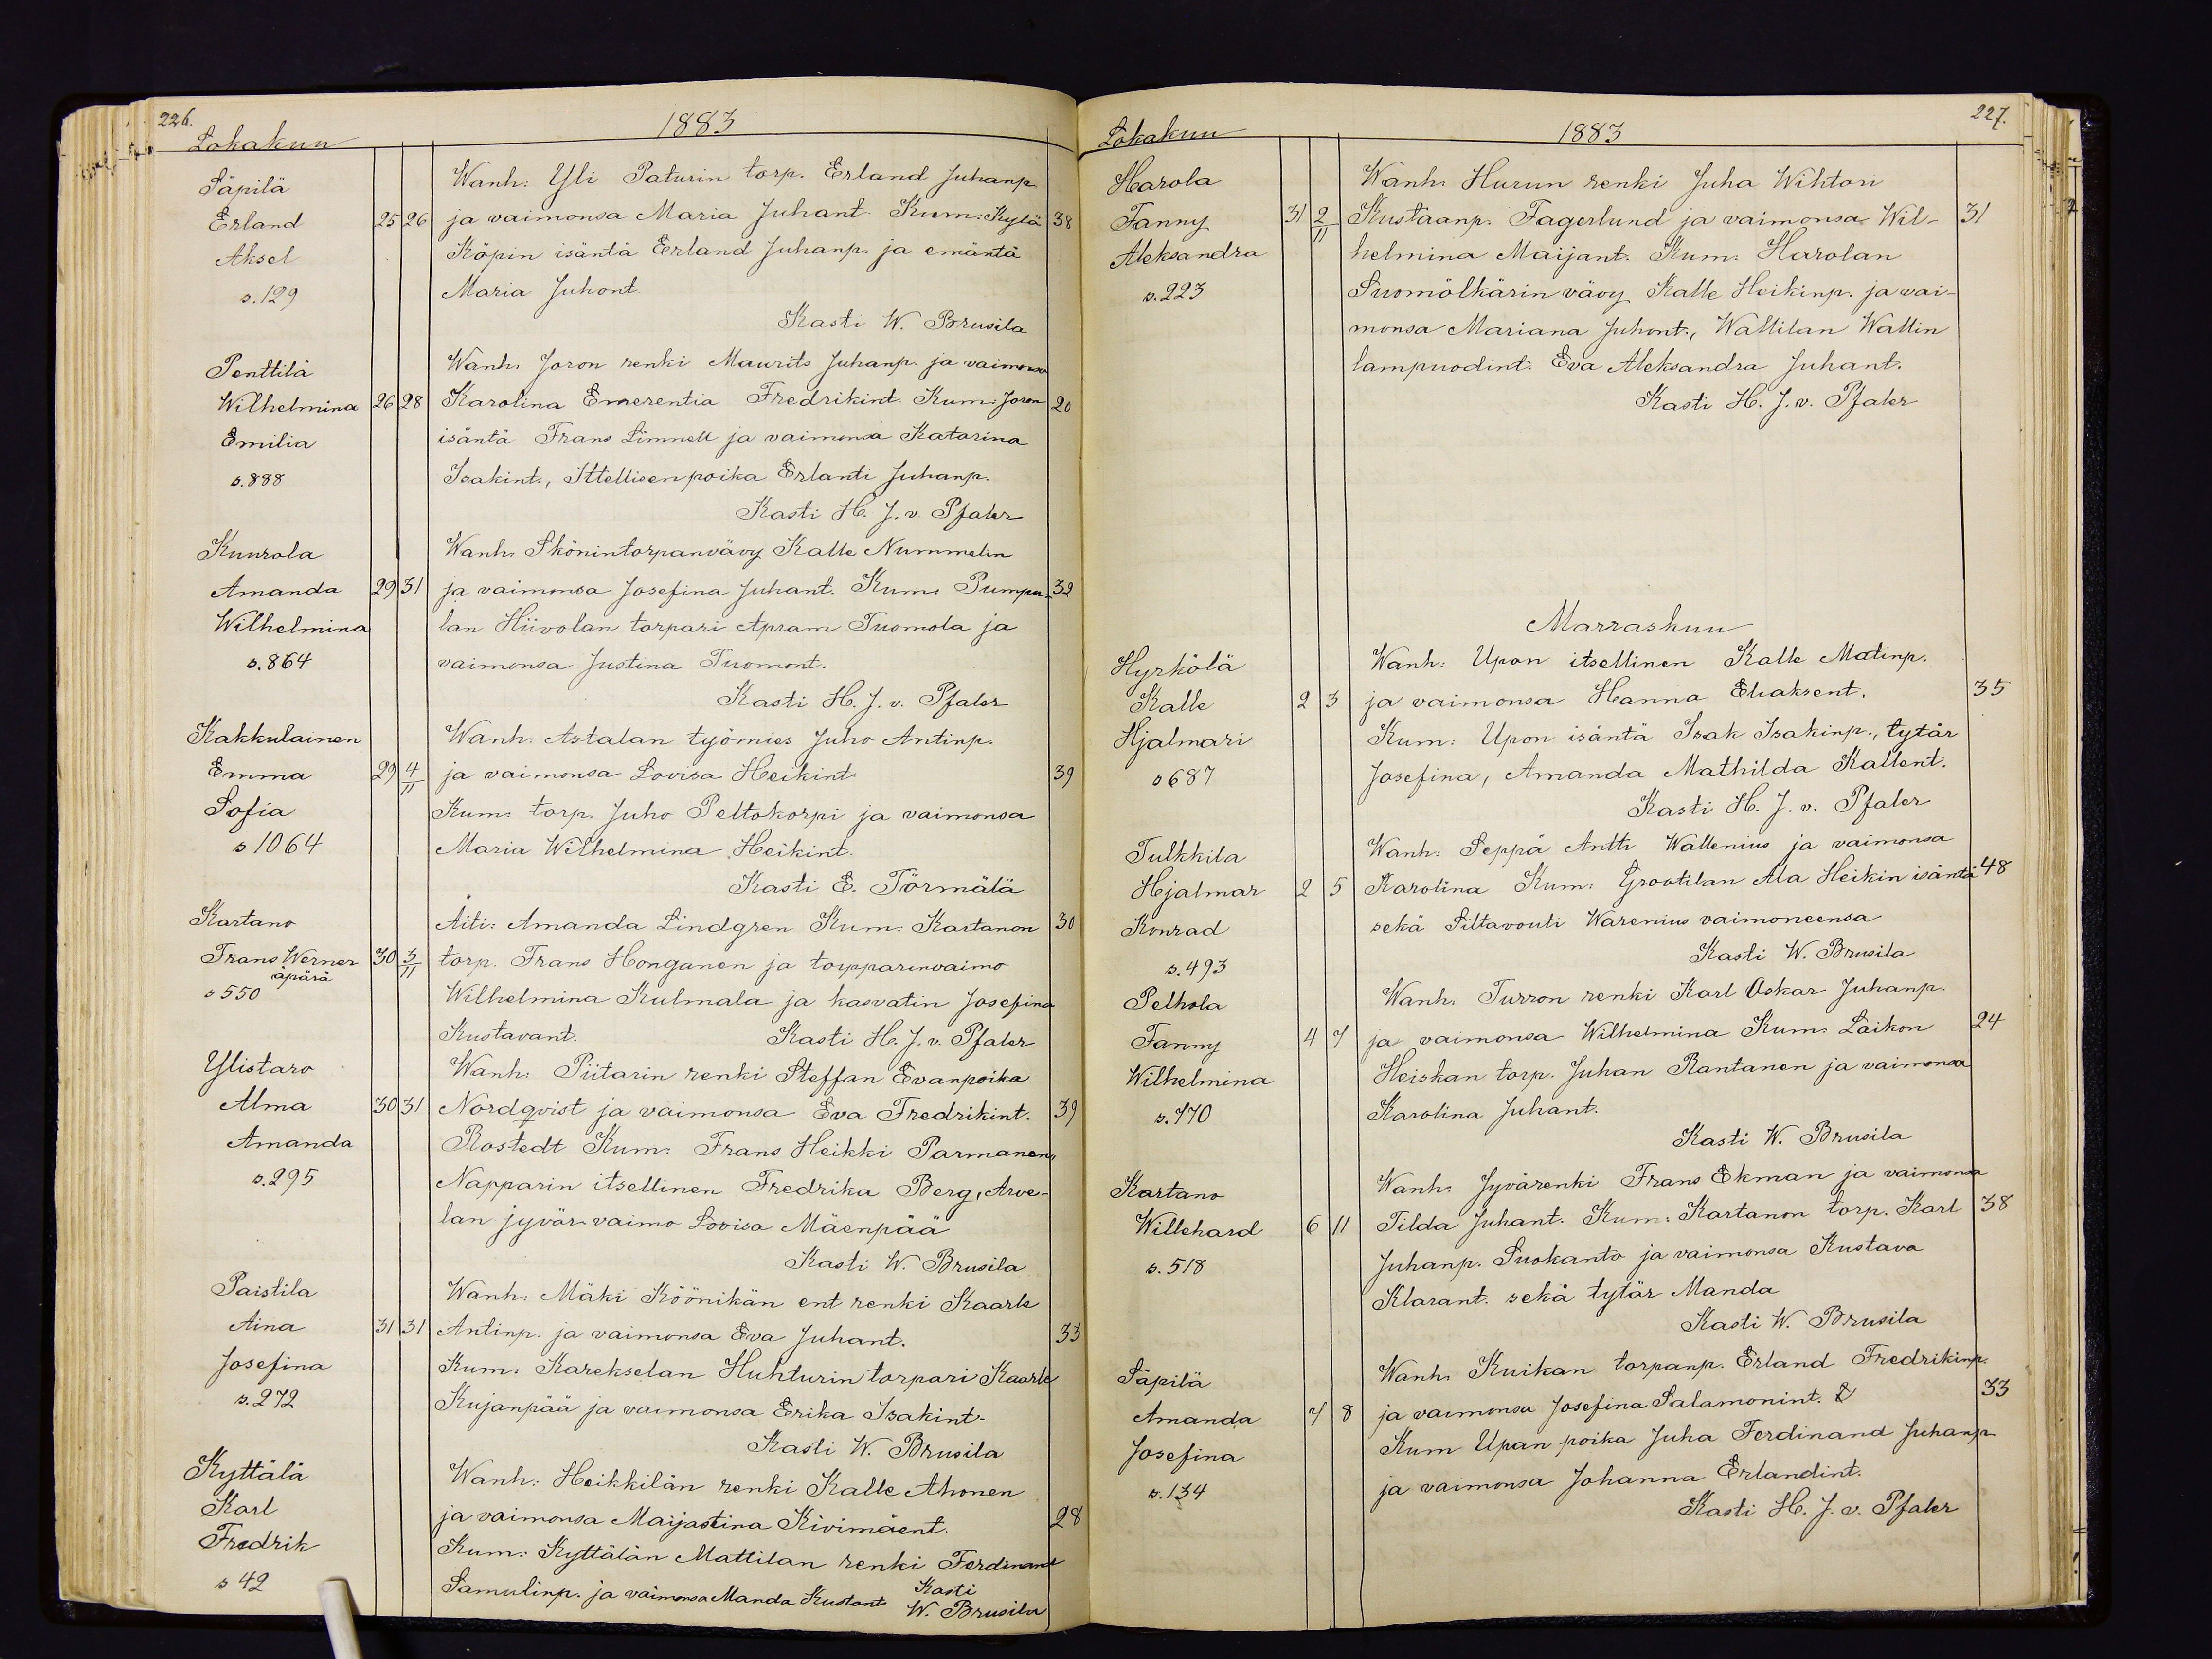 226.
Lokakuu
1883
Säpilä
Wanh: Yli Paturin torp. Erland Juhanp.
Erland 25 26 ja vaimonsa Maria Juhant. Kum: Kylä 38
Aksel Köpin isäntä Erland Juhanp. ja emäntä
s.129 Maria Juhont.
Kasti W. Brusila
Penttilä Wanh. Joron renki Maurits Juhanp. ja vaimonsa
Wilhelmina 26 28 Karolina Emerentia Fredrikint. Kum: Joron 20
Emilia isäntä Frans Limnell ja vaimonsa Katarina
s.888 Isakint., Ittellisen poika Erlanti Juhanp.
Kasti H. J. v. Pfaler
Kuurola Wanh. Skönintorpanvävy Kalle Nummelin
Amanda 29 31 ja vaimonsa Josefina Juhant. Kum. Pumpu- 32
Wilhelmina lan Hiivolan torpari Apram Tuomola ja
s.864 vaimonsa Justina Tuomont.
Kasti H. J. v. Pfaler
Kakkulainen Wanh: Astalan työmies Juho Antinp.
Emma 29 4/11 ja vaimonsa Lovisa Heikint. 39
Sofia Kum: torp. Juho Peltokorpi ja vaimonsa
s 1064 Maria Wilhelmina Heikint.
Kasti E. Törmälä
Kartano Äiti: Amanda Lindgren Kum: Kartanon 30
Frans Werner 30 3/11 torp. Frans Honganen ja torpparinvaimo
äpärä
s 550 Wilhelmina Kulmala ja kasvatin Josefina
Kustavant. Kasti H. J. v. Pfaler
Ylistaro Wanh: Piitarin renki Steffan Evanpoika
Alma 30 31 Nordqvist ja vaimonsa Eva Fredrikint. 39
Amanda Rostedt Kum: Frans Heikki Parmanen,
s.295 Napparin itsellinen Fredrika Berg, Arve-
lan jyvär vaimo Lovisa Mäenpää
Kasti W. Brusila
Paistila Wanh: Mäki Köönikän ent renki Kaarle
Aina 31 31 Antinp. ja vaimonsa Eva Juhant. 33
Josefina Kum: Karekselan Huhturin torpari Kaarle
s.272 Kujanpää ja vaimonsa Erika Isakint.
Kasti W. Brusila
Kyttälä Wanh: Heikkilän renki Kalle Ahonen
Karl ja vaimonsa Maijastina Kivimäent. 28
Fredrik Kum: Kyttälän Mattilan renki Ferdinand
s 42 Samulinp. ja vaimonsa Manda Kustant Kasti
W. Brusila
227.
Lokakuu
1883
Harola Wanh. Hurun renki Juha Wihtori
Fanny 31 2/11 Kustaanp. Fagerlund ja vaimonsa Wil- 31
Aleksandra helmina Maijant. Kum: Harolan
s.223 Suomölkärin vävy Kalle Heikinp. ja vai-
monsa Mariana Juhont., Wallilan Wallin
lampuodint. Eva Aleksandra Juhant.
Kasti H. J. v. Pfaler
Marraskuu
Hyrkölä Wanh: Upon itsellinen Kalle Matinp.
Kalle 2 3 ja vaimonsa Hanna Eliaksent. 35
Hjalmari Kum: Upon isäntä Isak Isakinp., tytär
s 687 Josefina, Amanda Mathilda Kallent.
Kasti H. J. v. Pfaler
Tulkkila Wanh: Seppä Antti Wallenius ja vaimonsa
Hjalmar 2 5 Karolina Kum: Grootilan Ala Heikin isäntä 48
Konrad sekä Siltavouti Warenius vaimoneensa
s.493 Kasti W. Brusila
Pelhola Wanh: Turron renki Karl Oskar Juhanp.
Fanny 4 7 ja vaimonsa Wilhelmina Kum: Laikon 24
Wilhelmina Heiskan torp. Juhan Rantanen ja vaimonsa
s.770 Karolina Juhant.
Kasti W. Brusila
Kartano Wanh. Jyvärenki Frans Ekman ja vaimonsa
Willehard 6 11 Tilda Juhant. Kum: Kartanon torp. Karl 38
s.518 Juhanp. Suokanto ja vaimonsa Kustava
Klarant. sekä tytär Manda
Kasti W. Brusila
Säpilä Wanh. Kuikan torpanp. Erland Fredrikinp.
Amanda 7 8 ja vaimonsa Josefina Salamonint. 33
Josefina Kum Upan poika Juha Ferdinand Juhanp
s.134 ja vaimonsa Johanna Erlandint.
Kasti H. J. v. Pfaler